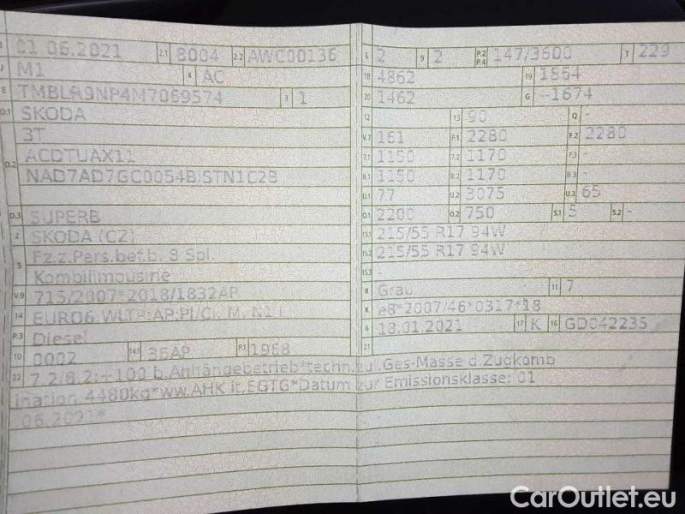 01.06.2021 2.1 8004 2.2 AWC00136
M1 4 AC
TMBLA9NP4M7069574 3 1
D.1 SKODA
3T
D.2 ACDTUAX11
NAD7AD7GC0054B/STN1C2B
D.3 SUPERB
2 SKODA (CZ)
5 Fz.z.Pers.bef.b. 8 Spl.
Kombilimousine
V.9 715/2007*2018/1832AP
14 EURO6
P.3 Diesel
10 0002 14.1 36AP P.1 1968
22 7.2/8.2:+100 b.Anhängebetrieb*techn.zul.Ges-Masse d.Zugkomb
ination 4480kg*ww.AHK lt.EGTG*Datum zur Emissionsklasse: 01
.06.2021*
2 9 2 P.2 P.4 147/3600 T 229
18 4862 19 1864
20 1462 G 1674
12 - 13 90 Q -
V.7 161 F.1 2280 F.2 2280
7.1 1150 7.2 1170 7.3 -
8.1 1150 8.2 1170 8.3 -
U.1 77 U.2 3075 U.3 65
O.1 2200 O.2 750 S.1 5 S.2 -
15.1 215/55 R17 94W
15.2 215/55 R17 94W
15.3 -
R Grau 11 7
K e8*2007/46*0317*18
6 18.01.2021 17 K 16 GD042235
21
CarOutlet.eu